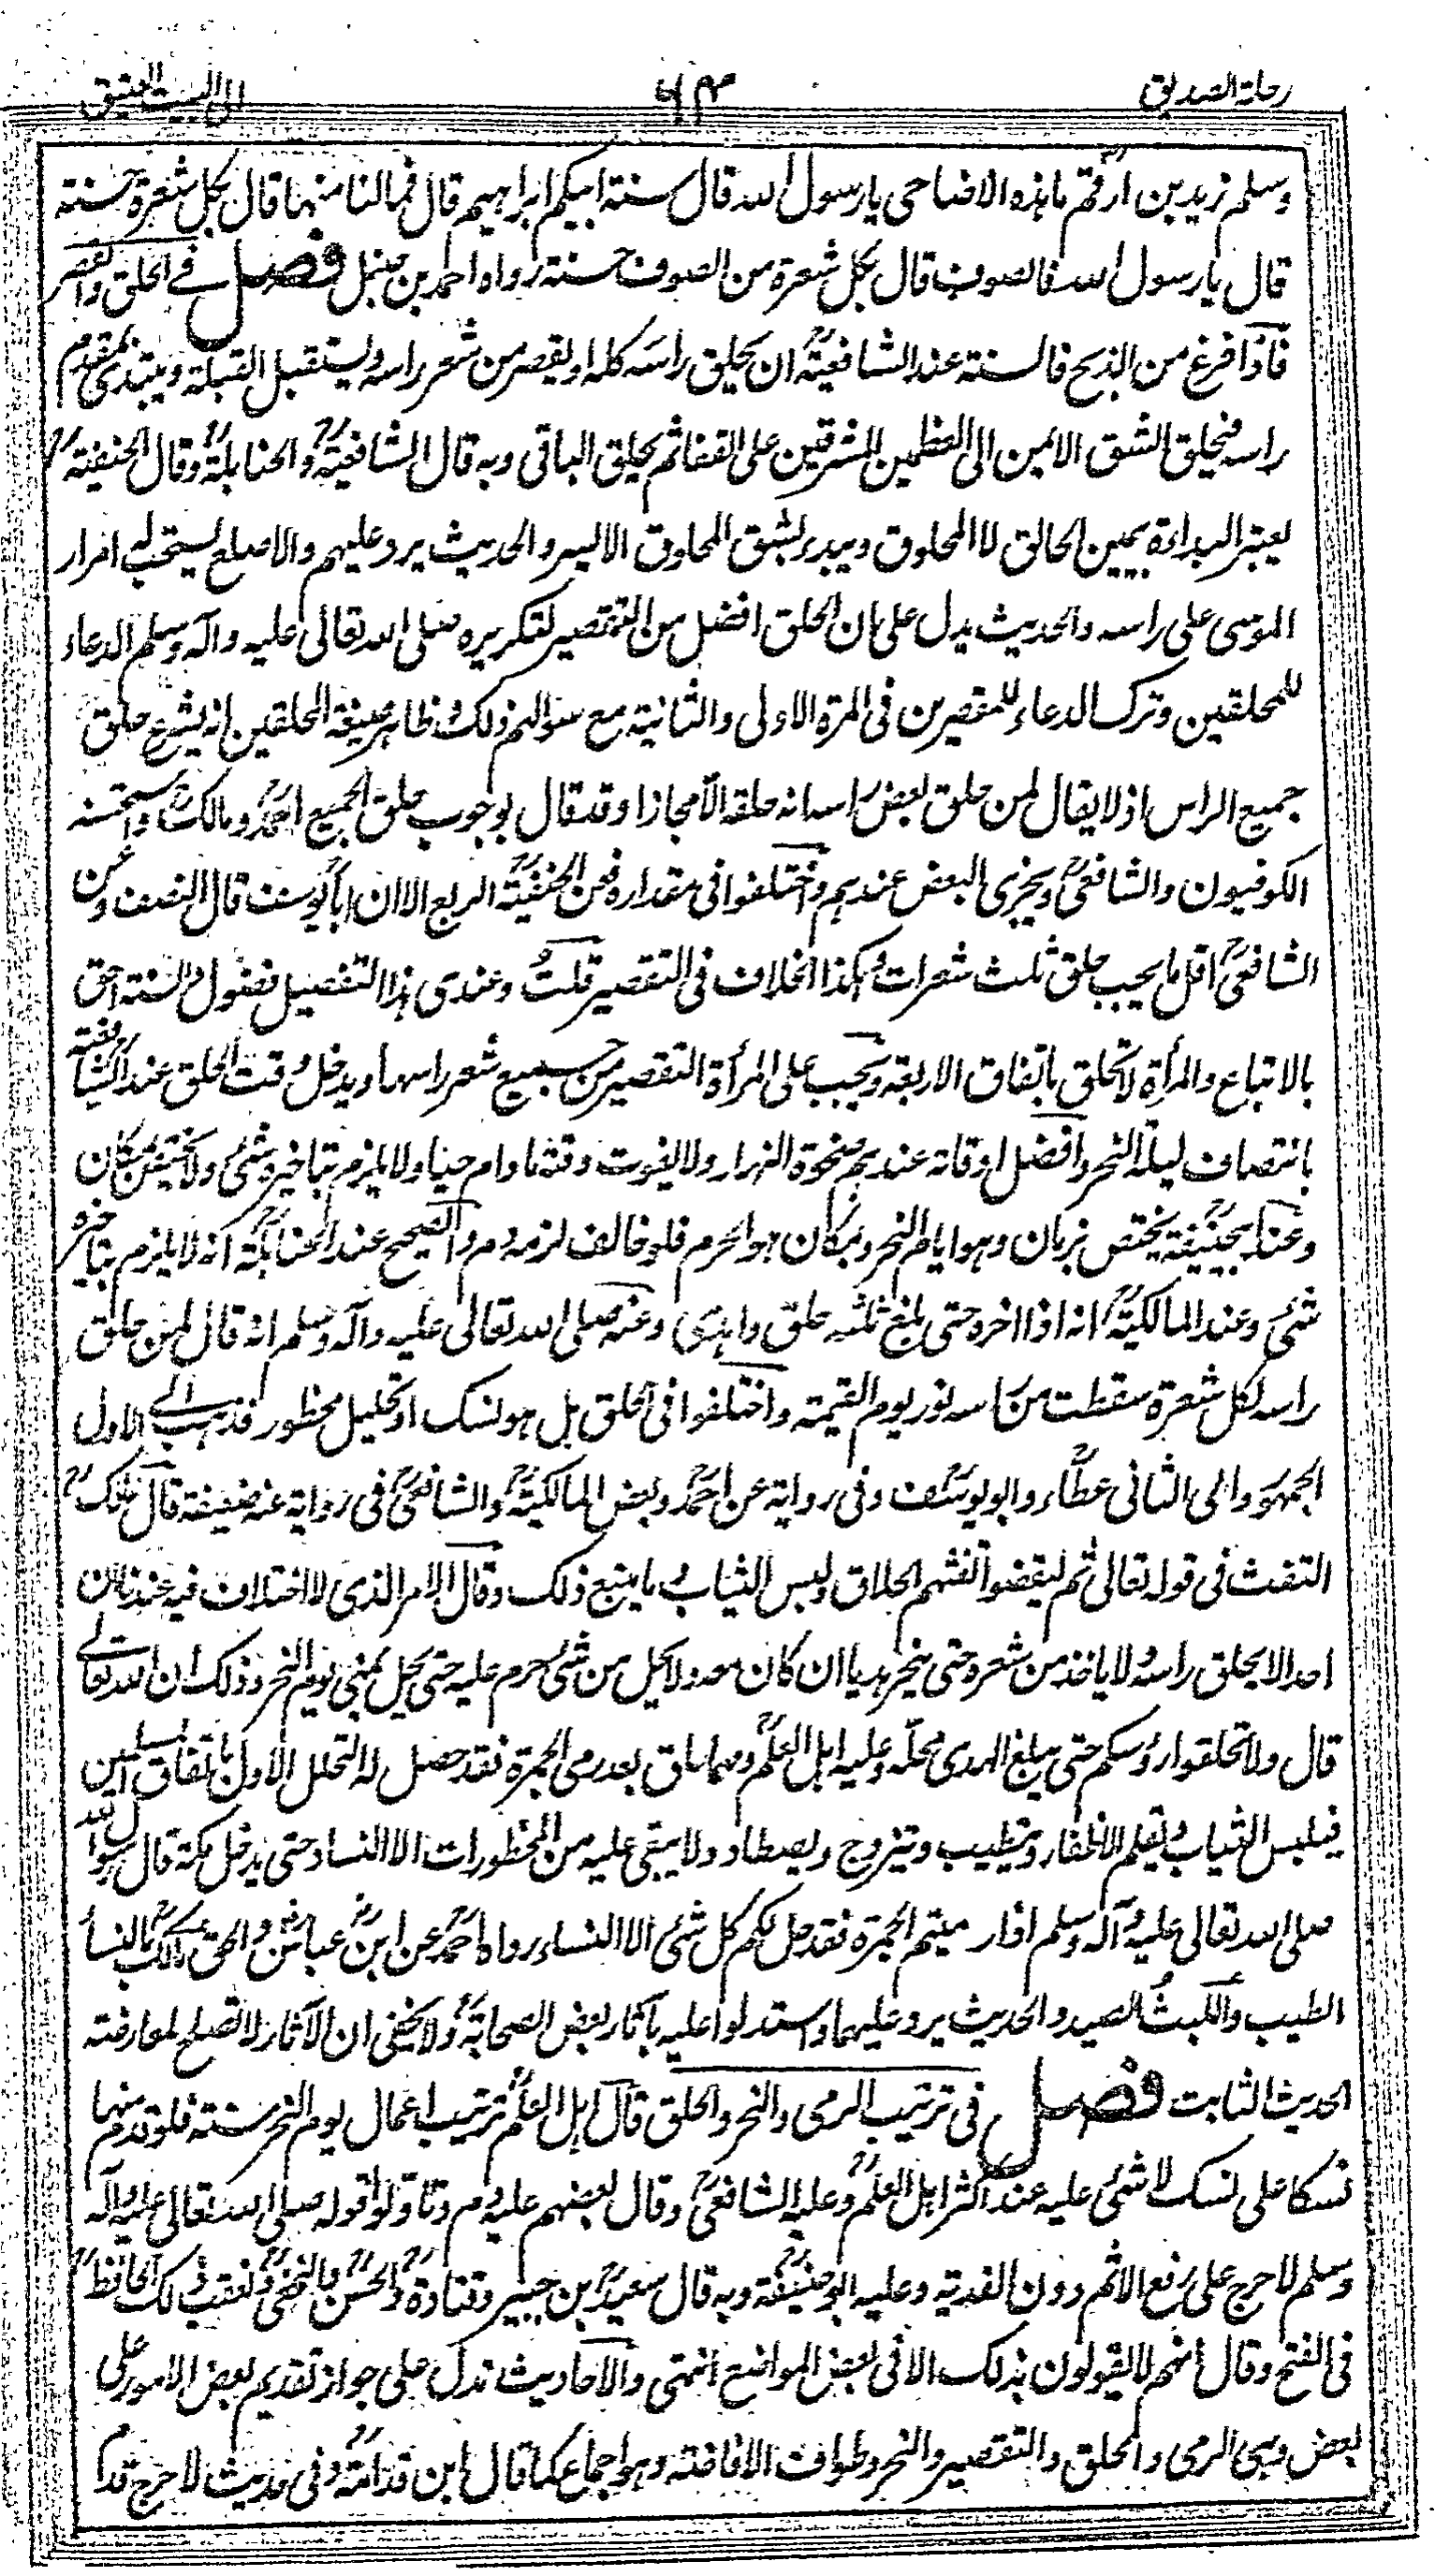 رحلة الصديق
٦٤
الى البيت العتيق
وسلم زيد بن ارقم ما هذه الاضاحى يا رسول الله قال سنة ابيكم ابراهيم قال فما لنا منها قال بكل شعرة حسنة
قال يا رسول الله فالصوف قال بكل شعرة من الصوف حسنة رواه احمد بن حنبل فصل فى الحلق والقصر
فاذا فرغ من الذبح فالسنة عند الشافعية ان يحلق راسه كله او يقصر من شعر راسه ويستقبل القبلة ويبتدئ بمقدم
راسه فيحلق الشق الايمن الى العظمين المشرفين على القفا ثم يحلق الباقى وبه قال الشافعية والحنابلة وقال الحنفية
يعتبر البداءة بيمين الحالق لا المحلوق ويبدء بشق المحلوق الايسر والحديث يرد عليهم والاصلع يستحب له امرار
الموسى على راسه والحديث يدل على ان الحلق افضل من التقصير لتكريره صلى الله تعالى عليه وآله وسلم الدعاء
للمحلقين وترك الدعاء للمقصرين فى المرة الاولى والثانية مع سؤالهم ذلك وظاهر صيغة المحلقين انه يشرع حلق
جميع الراس اذ لا يقال لمن حلق بعض راسه انه حلقه الا مجازا وقد قال بوجوب حلق الجميع احمد ومالك واستحسنه
الكوفيون والشافعى ويجزى البعض عندهم واختلفوا فى مقداره فعن الحنفية الربع الا ان ابا يوسف قال النصف وعن
الشافعى اقل ما يجب حلق ثلث شعرات وهكذا الخلاف فى التقصير قلت وعندى هذا التفصيل فضول والسنة احق
بالاتباع والمرأة لا تحلق باتفاق الاربعة ويجب على المرأة التقصير من جميع شعر راسها ويدخل وقت الحلق عند الشافعية
بانتصاف ليلة النحر وافضل اوقاته عندهم ضحوة النهار ولا يفوت وقته ما دام حيا ولا يلزم بتاخيره شئ ولا يختص بمكان
وعند ابيحنيفة يختص بزمان وهو ايام النحر وبمكان هو الحرم فلو خالف لزمه دم والصحيح عند الحنابلة انه لا يلزم بتاخيره
شئ وعند المالكية انه اذا اخره حتى بلغ بلده حلق واهدى وعنه صلى الله تعالى عليه وآله وسلم انه قال لمن حلق
راسه لكل شعرة سقطت من راسه نور يوم القيمة واختلفوا فى الحلق هل هو نسك او تحليل محظور فذهب الى الاول
الجمهور والى الثانى عطاء وابو يوسف وفى رواية عن احمد وبعض المالكية والشافعى فى رواية عنه ضعيفة قال مالك
التفث فى قوله تعالى ثم ليقضوا تفثهم الحلاق ولبس الثياب وما يتبع ذلك وقال الامر الذى لا اختلاف فيه عندنا ان
احدا لا يحلق راسه ولا ياخذ من شعره حتى ينحر هديا ان كان معه ولا يحل من شئ حرم عليه حتى يحل بمنى يوم النحر وذلك ان الله تعالى
قال ولا تحلقوا رؤسكم حتى يبلغ الهدى محله وعليه اهل العلم ومهما حلق بعد رمى الجمرة فقد حصل له التحلل الاول باتفاق المسلمين
فيلبس الثياب ويقلم الاظفار ويتطيب ويتزوج ويصطاد ولا يبقى عليه من المحظورات الا النساء حتى يدخل مكة قال رسول الله
صلى الله تعالى عليه وآله وسلم اذا رميتم الجمرة فقد حل لكم كل شئ الا النساء رواه احمد عن ابن عباس والحق مالك بالنساء
الطيب والليث الصيد والحديث يرد عليهما واستدلوا عليه بآثار بعض الصحابة ولا يخفى ان الآثار لا تصلح لمعارضة
الحديث الثابت فصل فى ترتيب الرمى والنحر والحلق قال اهل العلم ترتيب اعمال يوم النحر سنة فلو قدم منها
نسكا على نسك لا شئ عليه عند اكثر اهل العلم وعليه الشافعى وقال بعضهم عليه دم وتاولوا قوله صلى الله تعالى عليه وآله
وسلم لا حرج على رفع الاثم دون الفدية وعليه ابو حنيفة وبه قال سعيد بن جبير وقتادة والحسن والنخعى وتعقب ذلك الحافظ
فى الفتح وقال انهم لا يقولون بذلك الا فى بعض المواضع انتهى والاحاديث تدل على جواز تقديم بعض الامور على
بعض وهى الرمى والحلق والتقصير والنحر وطواف الافاضة وهو اجماع كما قال ابن قدامة وفى حديث لا حرج قد ا